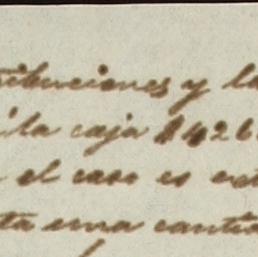 tribuciones y la
la caja $426
el caso es ext
ta una canti